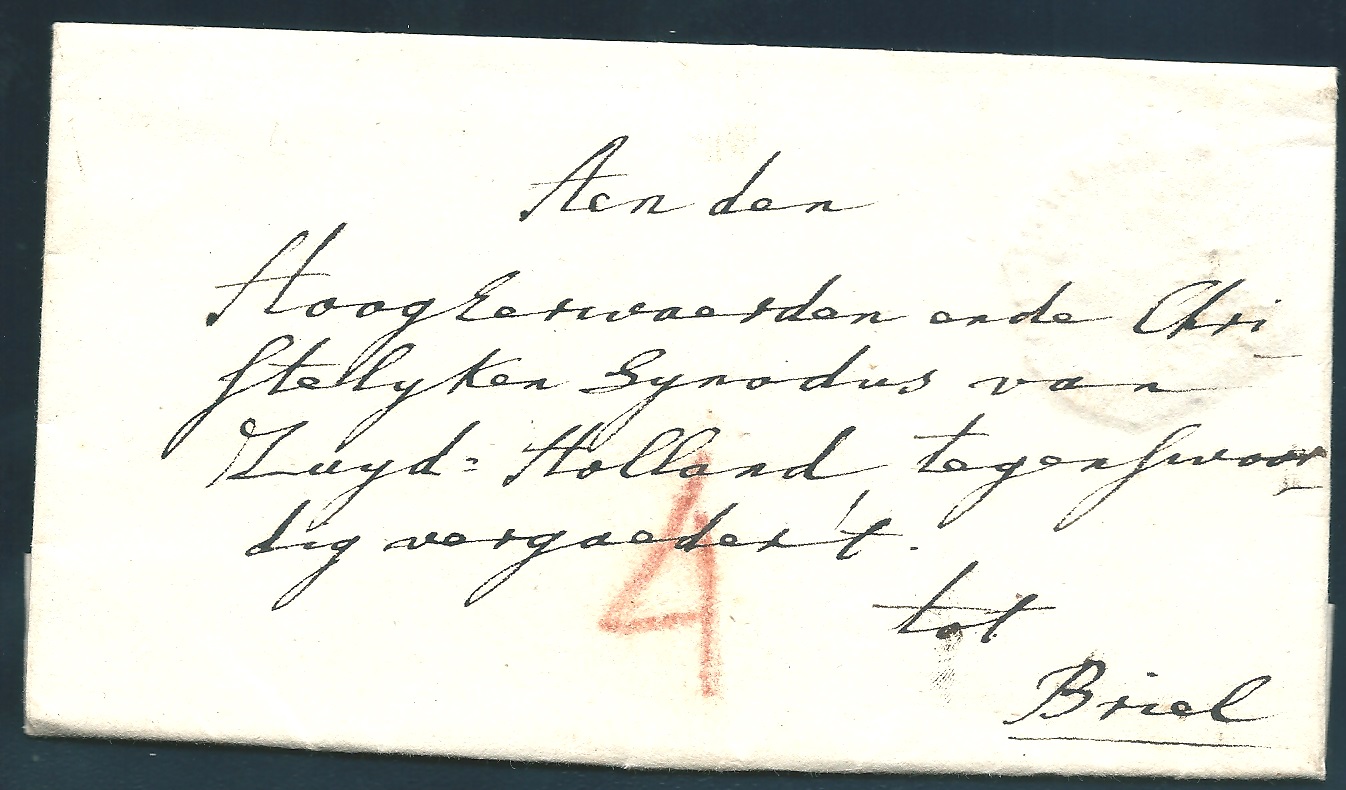 Aen den
Hoog Eerwaerden ende Chri-
stellyken Synodus van
Zuyd=Holland, tegenswoor-
dig vergaedert.
4
tot
Briel